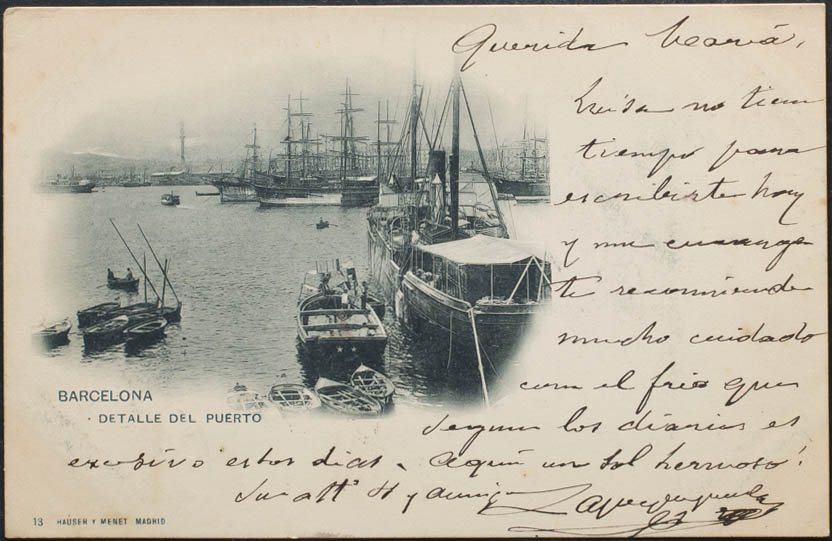 Querida María,
Luisa no tiene
tiempo para
escribirte hoy
y me encarga
te recomiende
mucho cuidado
con el frio que
segun los diarios es
excesivo estos dias. Aquí un sol hermoso!
Su att° y amigo
BARCELONA
· DETALLE DEL PUERTO
13 HAUSER Y MENET MADRID